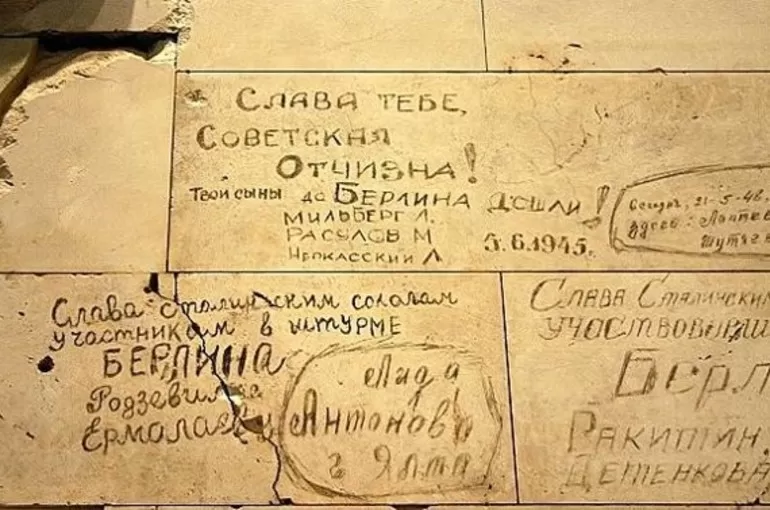 СЛАВА ТЕБЕ,
СОВЕТСКАЯ
ОТЧИЗНА!
ТВОИ СЫНЫ до БЕРЛИНА ДОШЛИ!
МИЛЬБЕРГ Л.
РАСУЛОВ М
ЧЕРКАССКИЙ Л
5.6.1945.
21-5-48.
здесь: Лаптев
Слава сталинским солдатам
участникам в штурме
БЕРЛИНА
Родзевил
Ермалаев
Лида
Антонова
г Ялта
СЛАВА СТАЛИНСКИМ
УЧАСТВОВАВШ
БЕРЛ
РАКИТИН,
ДЕТЕНКОВА